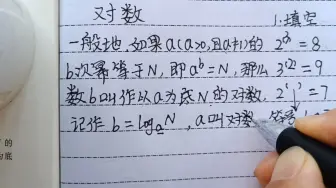 对数
一般地,如果a(a>0,且a≠1)的
b次幂等于N,即a^b=N,那么
数b叫作以a为底N的对数.
记作 b=log_a N ,a叫对数
1.填空
2^(3)=8
3^(2)=9
2^( )=7
的
底